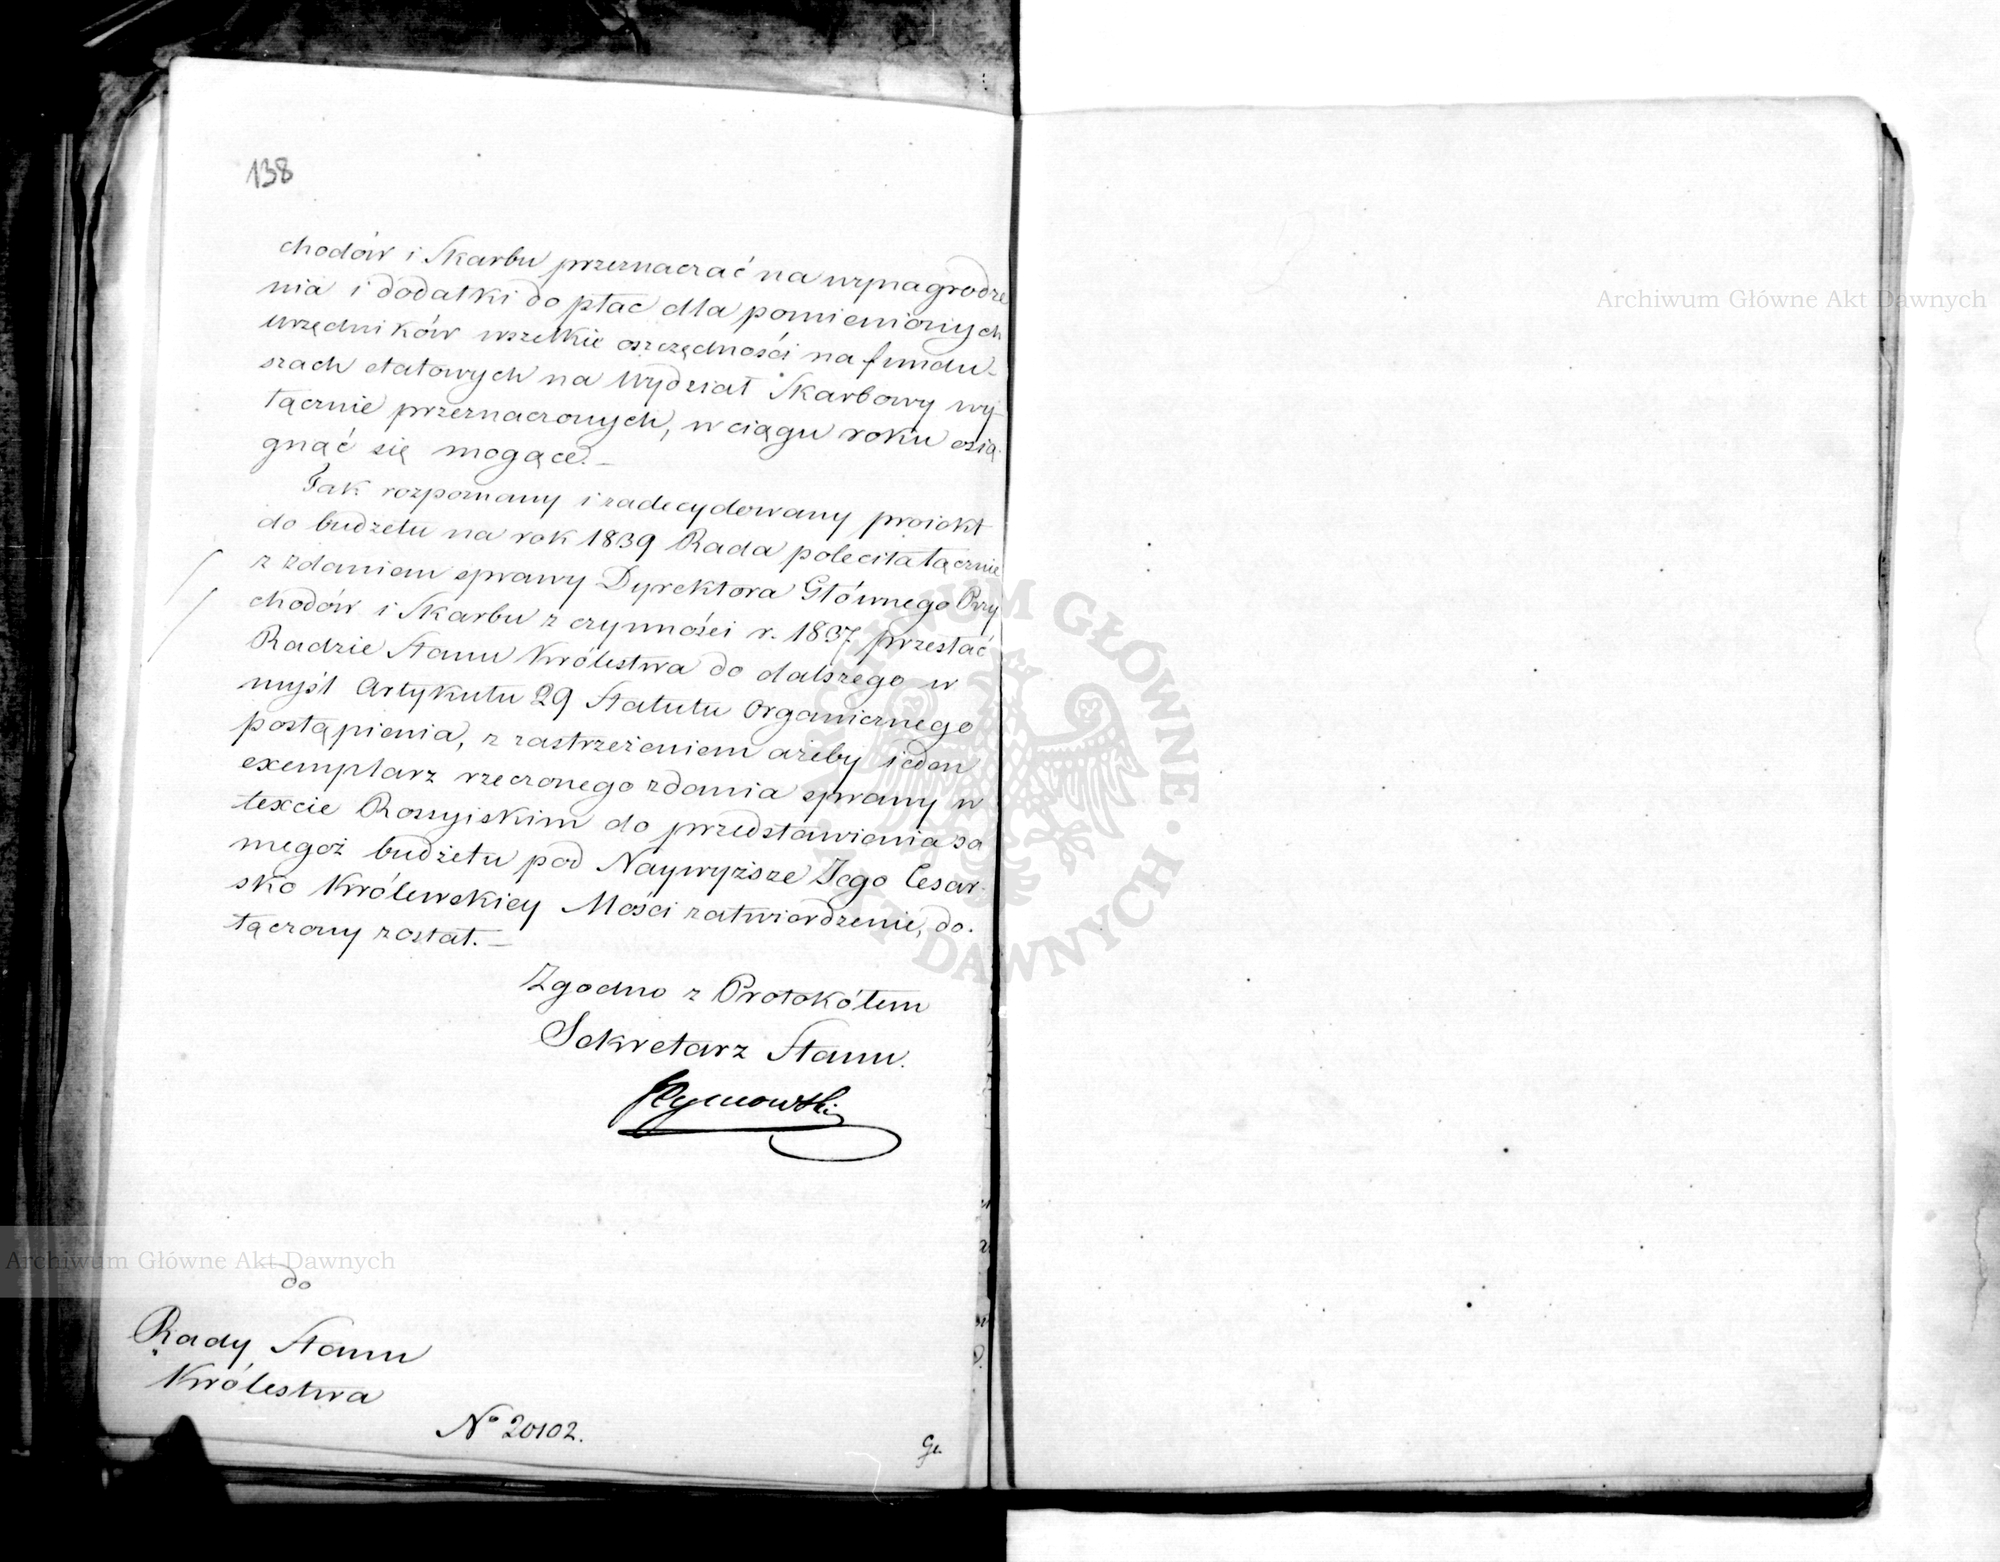 138
chodów i Skarbu przeznaczać na wynagrodze
nia i dodatki do płac dla pomienionych
urzędników wszelkie oszczędności na fundu-
szach etatowych na Wydział Skarbowy wy-
łącznie przeznaczonych, w ciągu roku osią-
gnąć się mogące.—
Tak rozpoznany i zadecydowany proiekt
do budżetu na rok 1839 Rada poleciła łącznie
z zdaniem sprawy Dyrektora Głównego Przy
chodów i Skarbu z czynności r. 1837. przesłać
Radzie Stanu Królestwa do dalszego w
myśl Artykułu 29 Statutu Organicznego
postąpienia, z zastrzeżeniem ażeby ieden
exemplarz rzeczonego zdania sprawy w
texcie Rossyiskim do przedstawienia sa
megoż budżetu pod Naywyższe Jego Cesar-
sko Królewskiey Mości zatwierdzenie, do-
łączony został.—
Zgodno z Protokółem
Sekretarz Stanu.
do
Rady Stanu
Królestwa
No 20102.
Archiwum Główne Akt Dawnych
Archiwum Główne Akt Dawnych
ARCHIWUM GŁÓWNE AKT DAWNYCH